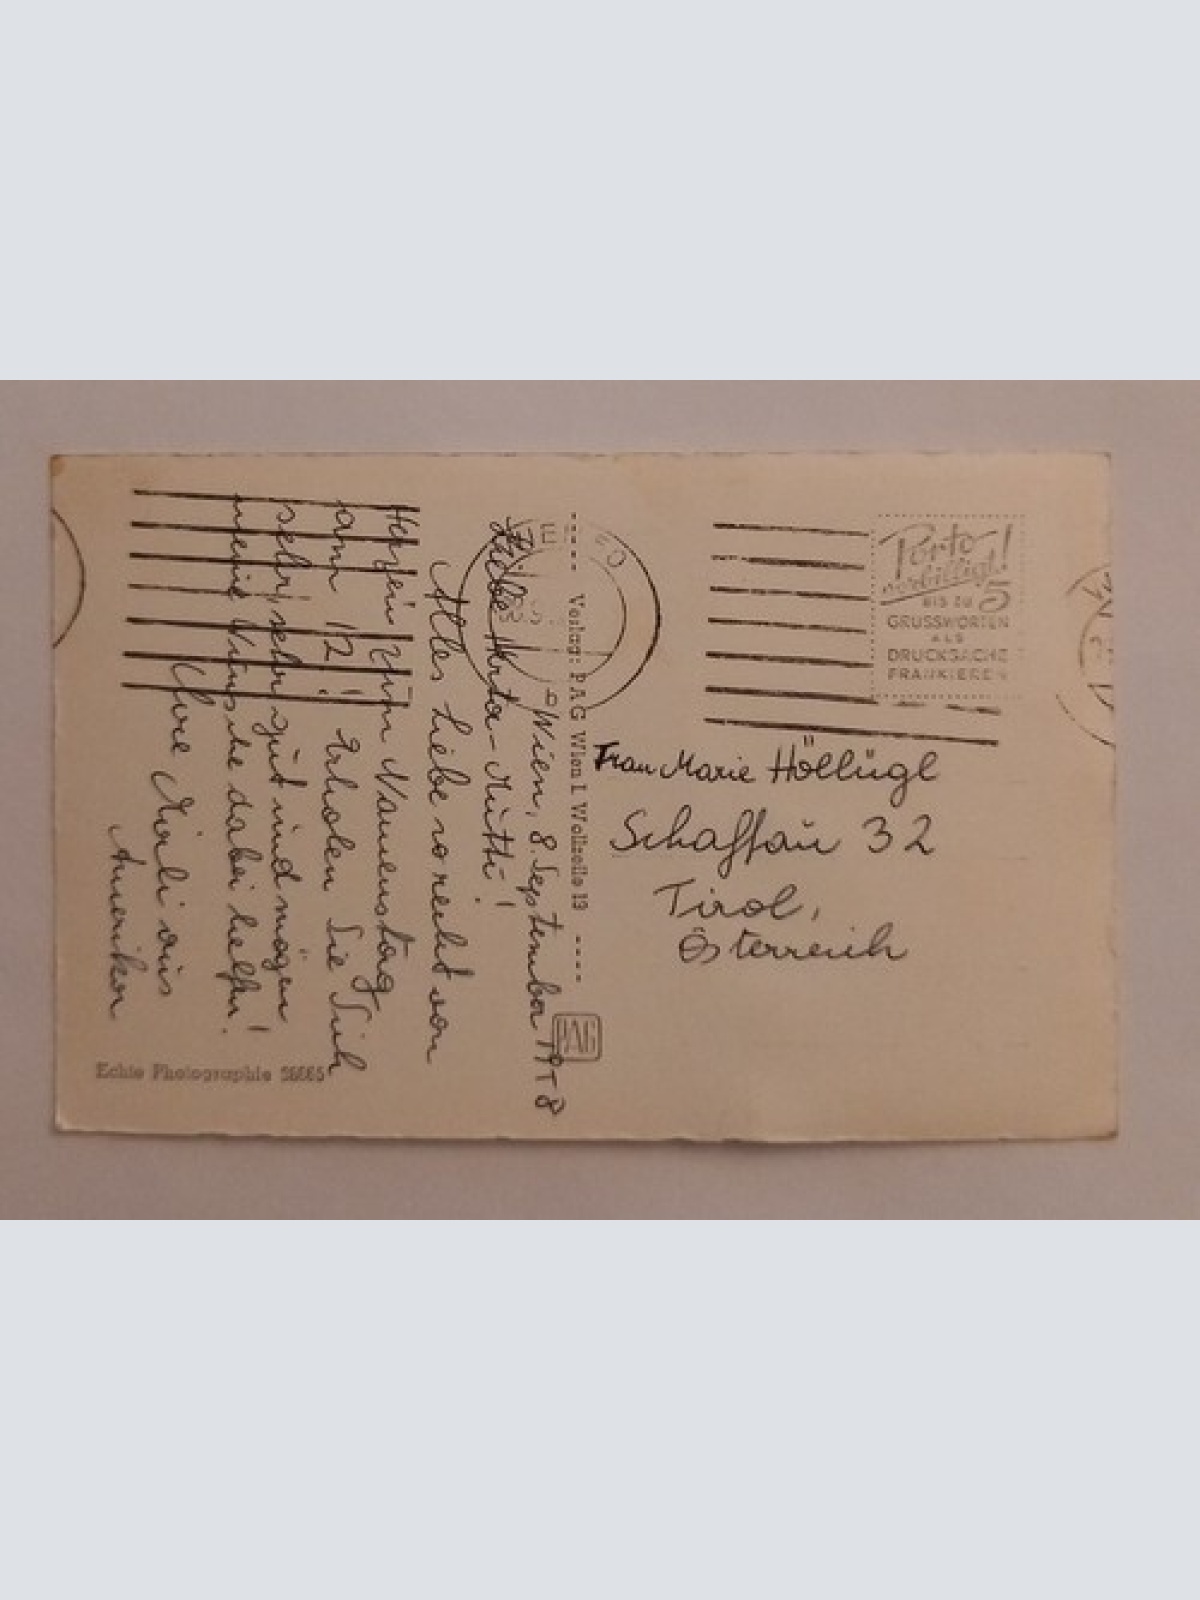 Wien, 8. September 1958
Liebe Herta-Mutti!
Alles Liebe so recht von
Herzen zum Namenstag
am 12! Erholen Sie Sich
sehr, sehr gut und mögen
meine Wünsche dabei helfen!
Ihre Mirli aus
Amerika
Echte Photographie
Verlag: PAG Wien I. Wollzeile 19
PAG
WIEN
Porto
verbilligt!
BIS ZU 5
GRUSSWORTEN
ALS
DRUCKSACHE
FRANKIEREN
Frau Marie Höllügl
Schaffau 32
Tirol,
Österreich